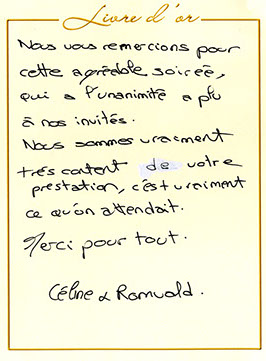 Livre d'or
Nous vous remercions pour
cette agréable soirée,
qui a l'unanimité a plu
à nos invités.
Nous sommes vraiment
très content de votre
prestation, c'est vraiment
ce qu'on attendait.
Merci pour tout.
Céline & Romuald.